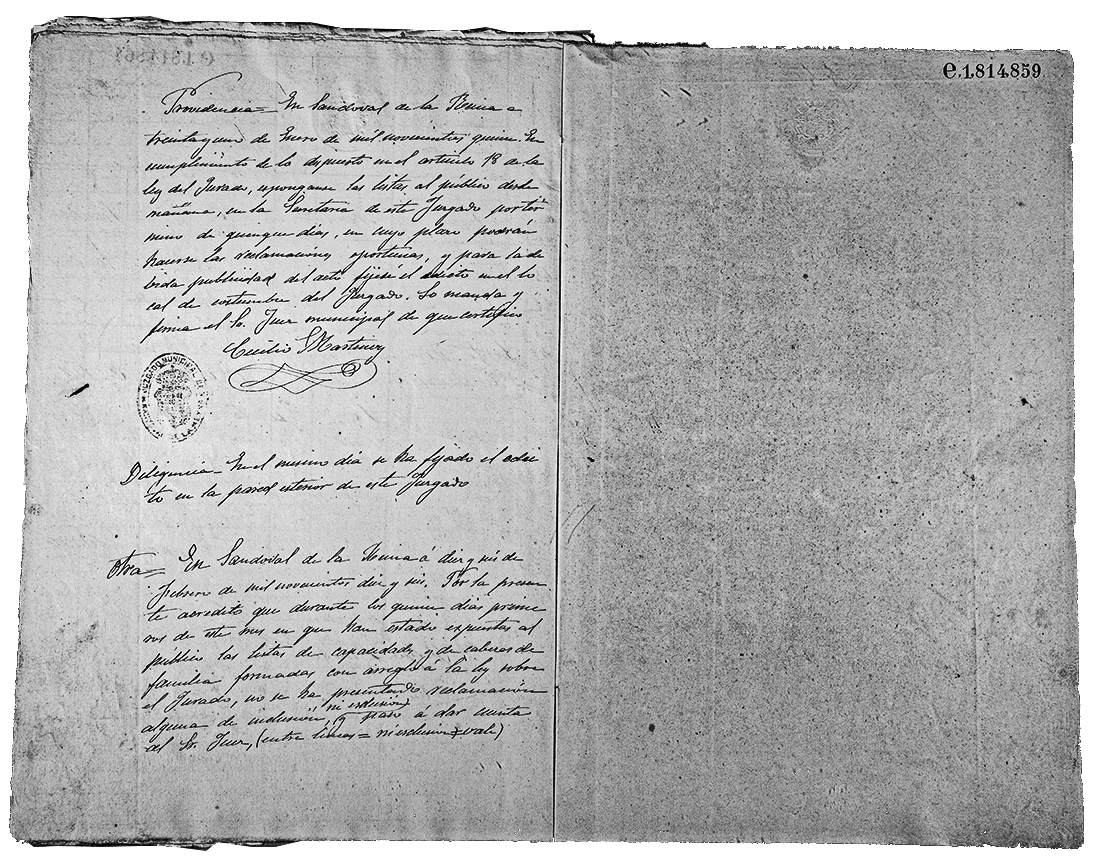 Providencia= En Sandoval de la Reina a
treintayuno de Enero de mil novecientos quince. En
cumplimiento de lo dispuesto en el articulo 18 de la
ley del Jurado, expongause las listas al público desde
mañana, en la Secretaria de este Juzgado por tér
mino de quinque dias, en cuyo plazo podrán
hacerse las reclamaciones oportunas, y para la de
bida publicidad del acto fijese el edicto en el lo
cal de costumbre del Juzgado. Lo manda y
firma el Sr. Juez municipal de que certifico
Cecilio Martinez
JUZGADO MUNICIPAL DE
DE LA REINA
Diligencia- En el mismo dia se ha fijado el edic
to en la pared exterior de este Juzgado
Otra= En Sandoval de la Reina á diez y seis de
Febrero de mil novecientos diez y seis. Por la presen
te acredito que durante los quince dias prime
ros de este mes en que han estado expuestas al
público las listas de capacidades y de cabezas de
familia formadas con arreglo á la ley sobre
el Jurado, no se ha presentando reclamación
alguna de inclusión, ni exclusión, y paso á dar cuenta
al Sr. Juez, (entre lineas = ni exclusion = vale)
e.1.814.859